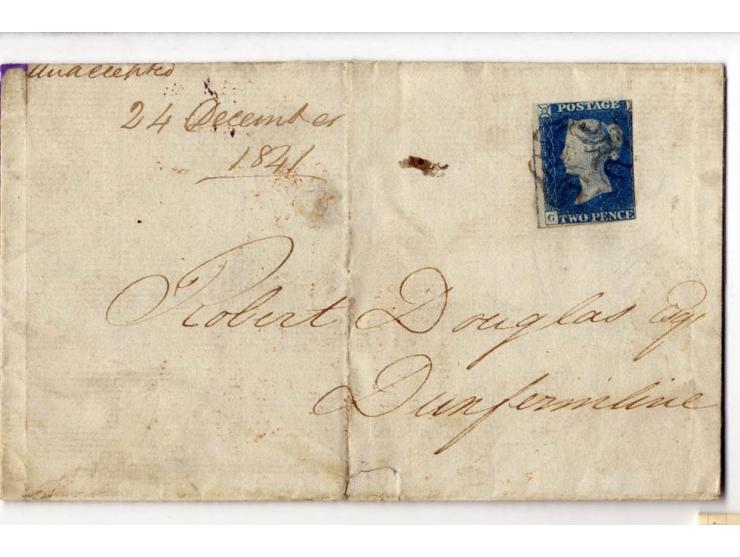 Unaccepted
24 December
1841
POSTAGE
G
TWO PENCE
Robert Douglas Esqr
Dunfermline